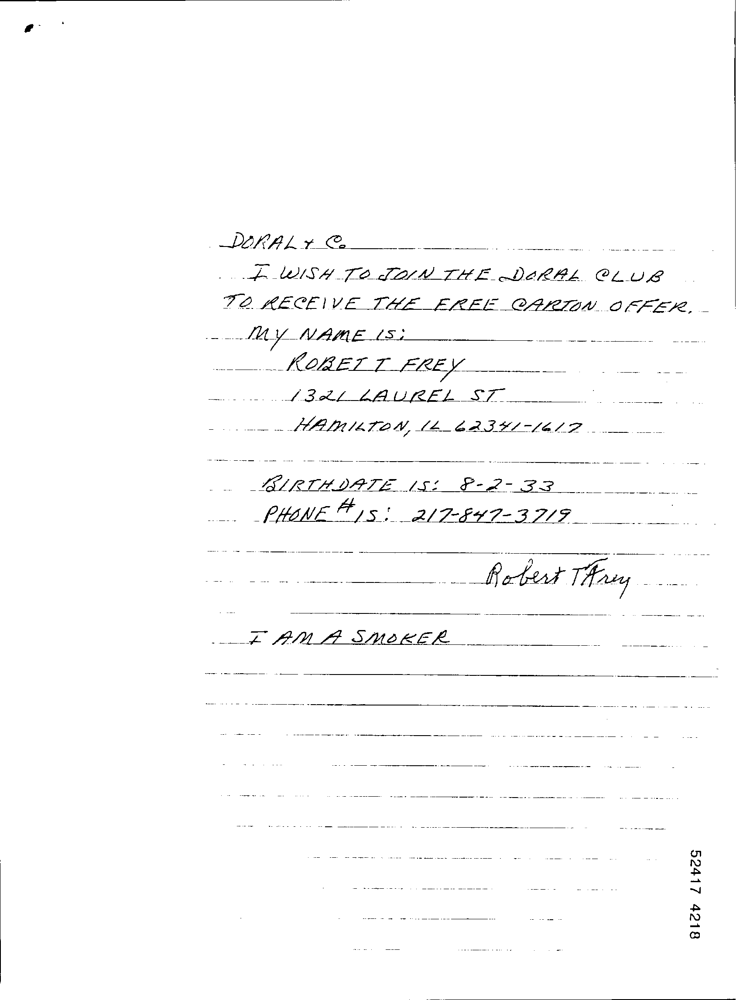 DORAL + Co.
I WISH TO JOIN THE DORAL CLUB
TO RECEIVE THE FREE CARTON OFFER.
MY NAME IS:
ROBET T FREY
1321 LAUREL ST
HAMILTON, IL 62341-1617
BIRTHDATE IS: 8-2-33
PHONE # IS: 217-847-3719
Robert T Frey
I AM A SMOKER
52417 4218